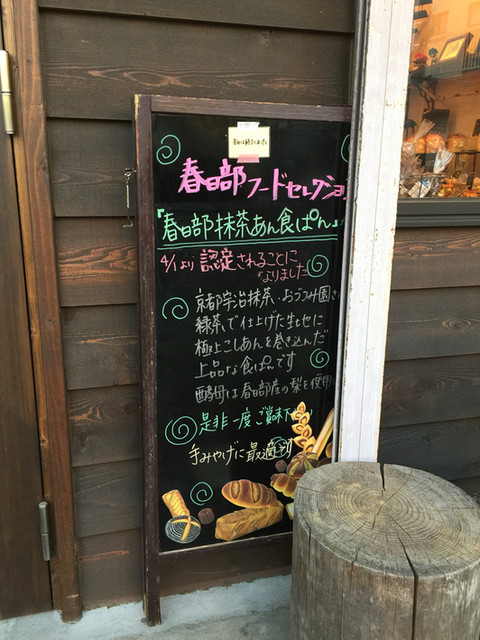 春日部フードセレクショ
『春日部抹茶あん食ぱん』
4/1より 認定されることに
なりました
京都宇治抹茶・おづつみ園さ
緑茶で仕上げた生地に
極上こしあんを巻き込んだ
上品な食ぱんです
酵母は春日部産の梨を使用
是非一度ご賞味下
手みやげに最適です